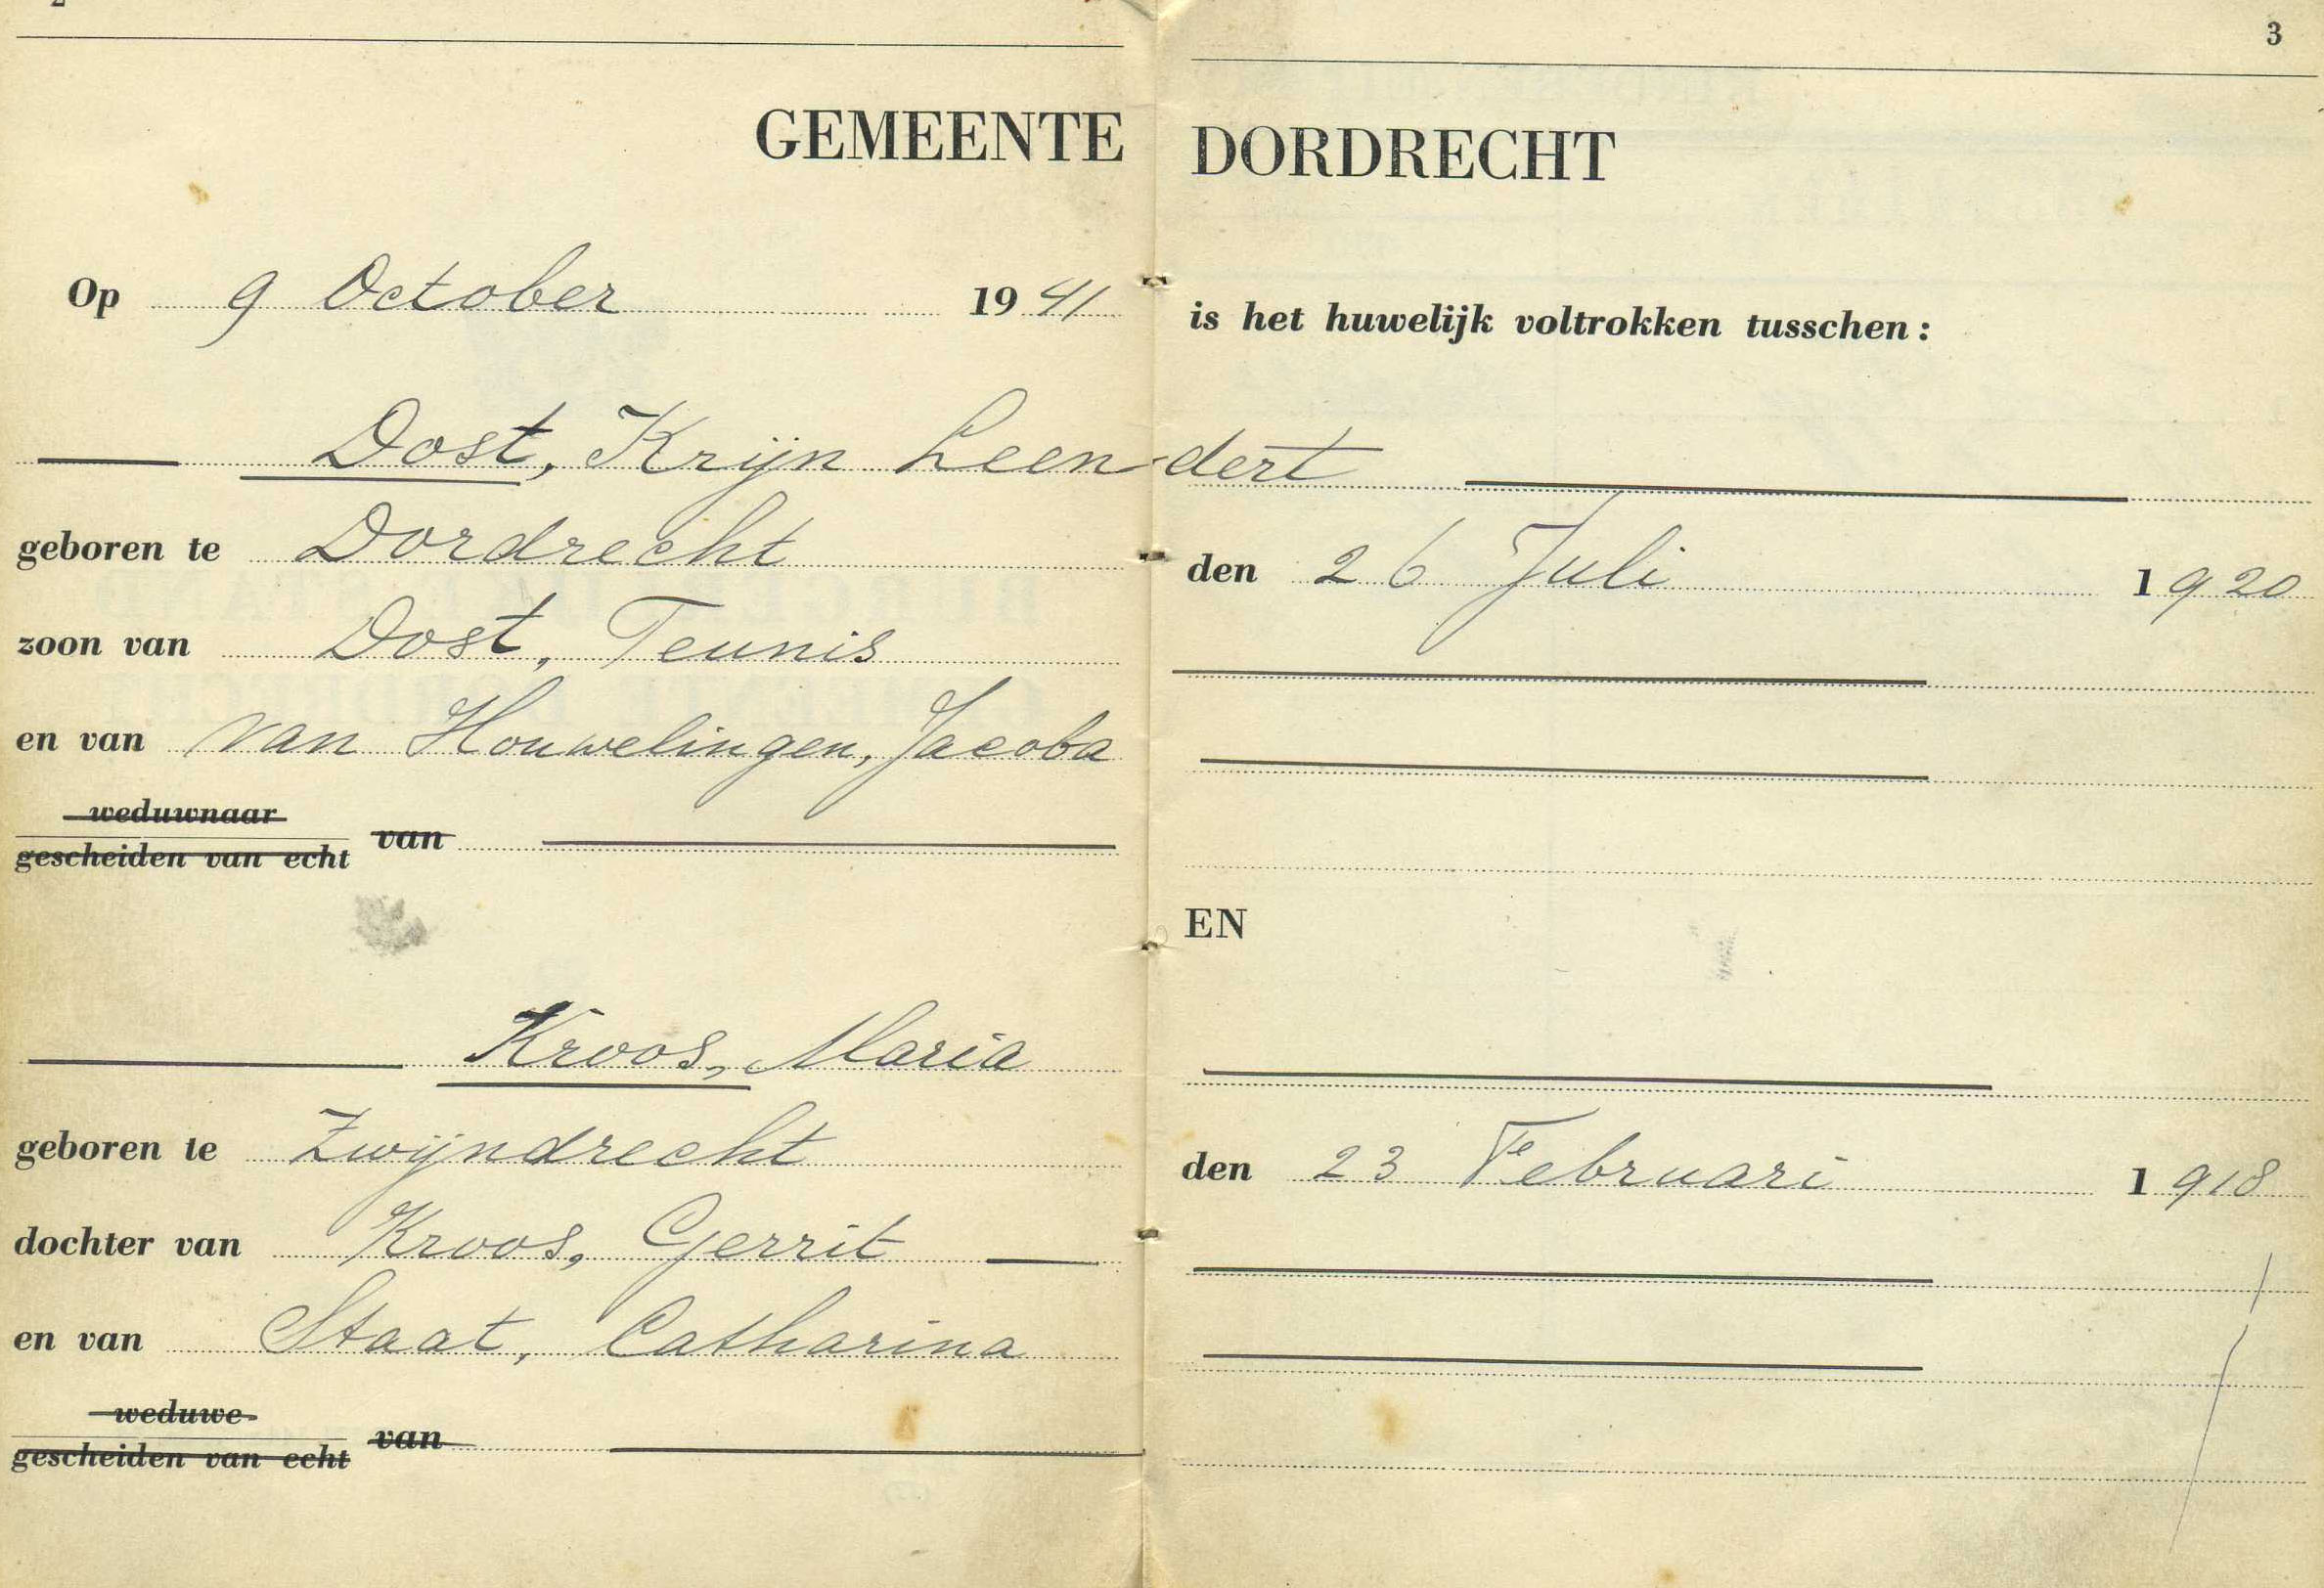 2
3
GEMEENTE DORDRECHT
Op 9 October 1941 is het huwelijk voltrokken tusschen:
Dost, Krijn Leendert
geboren te Dordrecht den 26 Juli 1920
zoon van Dost, Teunis
en van van Houwelingen, Jacoba
weduwnaar
gescheiden van echt van
EN
Kroos, Maria
geboren te Zwijndrecht den 23 Februari 1918
dochter van Kroos, Gerrit
en van Staat, Catharina
weduwe
gescheiden van echt van